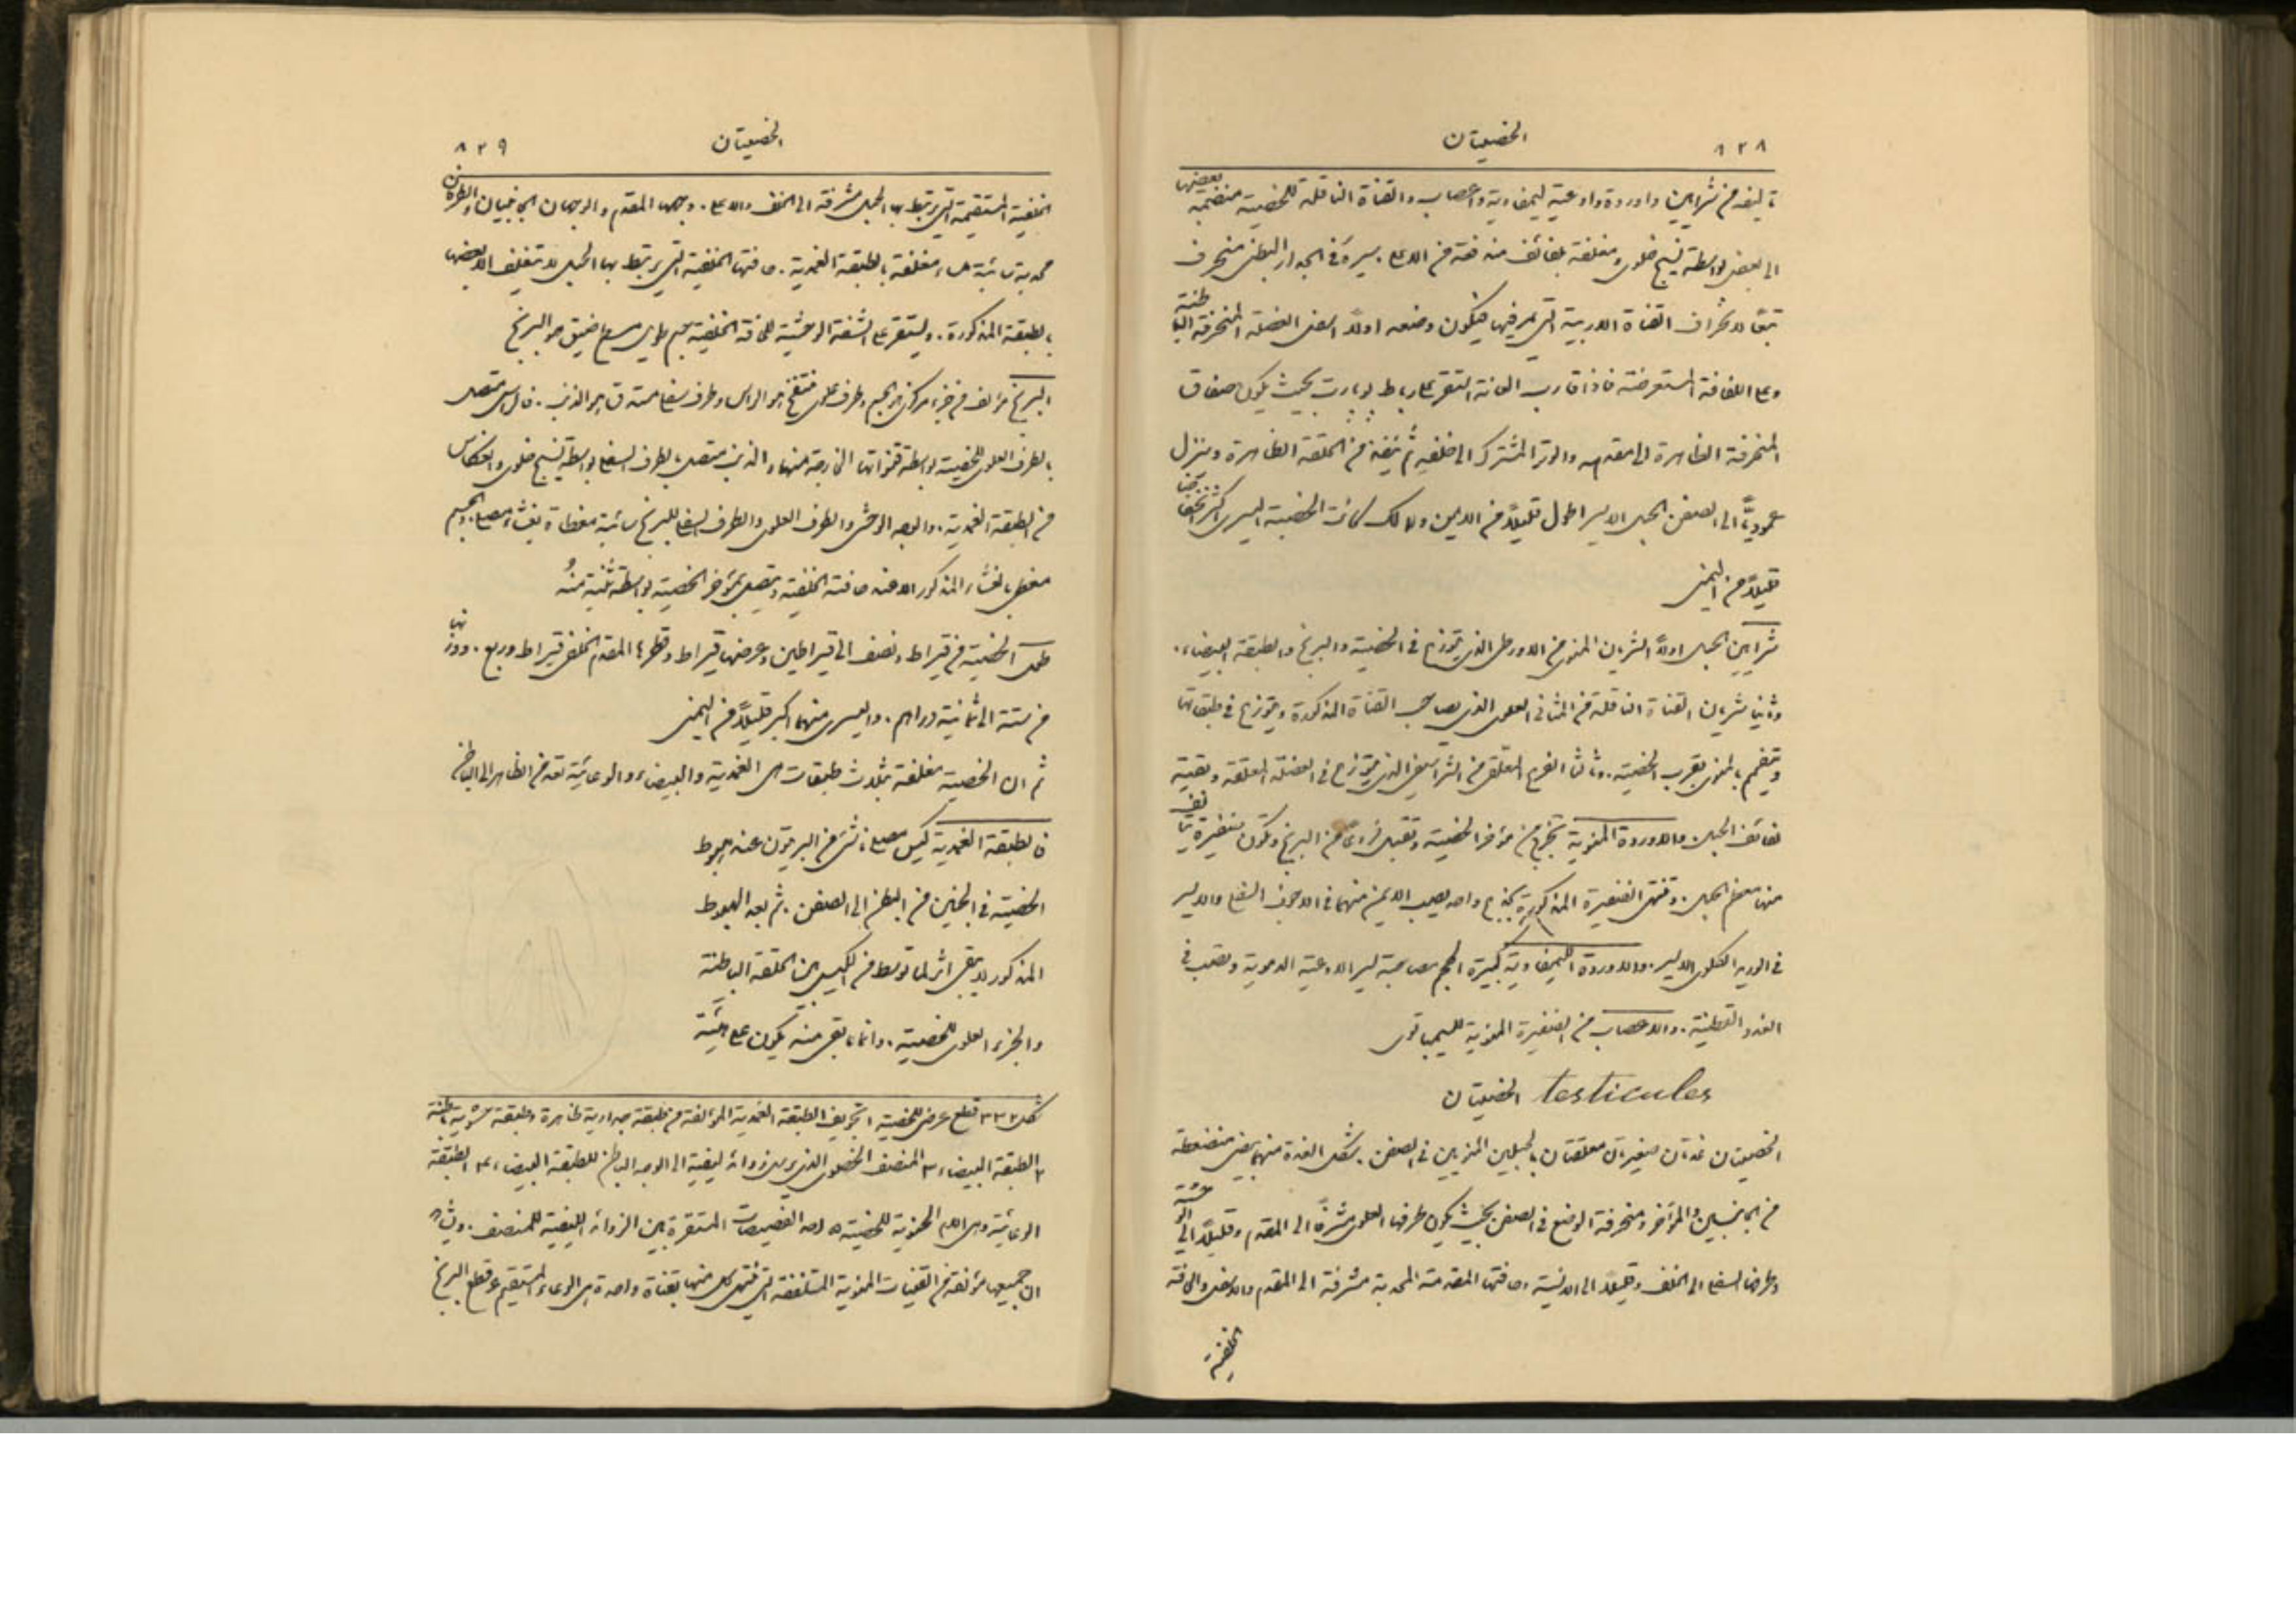 ٨٢٨ الخصيتان
تاليفه من شرايين واوردة واوعية ليمفاوية واعصاب والقناة الناقلة للخصية منضمة بعضها
الى بعض بواسطة نسيج خلوي ومغلفة بلفائف مندفعة من الاعلى. سيره في الجدار البطني منحرف
تبعًا لانحراف القناة الاربية التي يمر فيها فيكون وضعه اولًا اسفل العضلة المنحرفة الباطنة
وعلى اللفافة المستعرضة فاذا قارب العانة استقر على رباط بوبارت بحيث يكون صفاق
المنحرفة الظاهرة الى مقدمه والوتر المشترك الى خلفه ثم ينفذ من الحلقة الظاهرة وينزل
عموديًّا الى الصفن. الحبل الايسر اطول قليلًا من الايمن ولذلك كانت الخصية اليسرى اكثر انخفاضًا
قليلًا من اليمنى
شرايين الحبل اولًا الشريان المنوي من الاورطي الذي يتوزع في الخصية والبربخ والطبقة البيضاء.
وثانيا شريان القناة الناقلة من المثاني العلوي الذي يصاحب القناة المذكورة ويتوزع في طبقاتها
ويتفمم بالمنوي بقرب الخصية. وثالثا الفرع المعلق من الشراسيفي الذي يتوزع في العضلة المعلقة وبقية
لفائف الحبل. والاوردة المنوية تخرج من مؤخر الخصية وتقبل فروعًا من البربخ وتكون ضفيرة يتالف
منها معظم الحبل. وتنتهي الضفيرة المذكورة بجذع واحد يصب الايمن منهما في الاجوف السفلي والايسر
في الوريد الكلوي الايسر. والاوردة الليمفاوية كبيرة الحجم مصاحبة لسير الاوعية الدموية وتصب في
الغدد القطنية. والاعصاب من الضفيرة المنوية للسمباتوي
الخصيتان testicules
الخصيتان غدتان صغيرتان معلقتان بالحبلين المنويين في الصفن. شكل الغدة منهما بيضي منضغطة
من الجانبين والمؤخر ومنحرفة الوضع في الصفن بحيث يكون طرفها العلوي مشرفًا الى المقدم وقليلًا الى الوحشية
وطرفها السفلي الى الخلف وقليلًا الى الانسية. وحافتها المقدمة المحدبة مشرفة الى المقدم والاسفل والحافة
الخلفية
الخصيتان ٨٢٩
الخلفية المستقيمة التي يرتبط بها الحبل مشرفة الى الخلف والاعلى. وجهها المقدم والوجهان الجانبيان والطرفان
محدبة سائبة ملساء مغلفة بالطبقة الغمدية. حافتها الخلفية التي يرتبط بها الحبل لا يتغلف الا بعضها
بالطبقة المذكورة. ويستقر على الشفة الوحشية للحافة الخلفية جسم طويل مسطح ضيق هو البربخ
البربخ مؤلف من جزء مركزي هو الجسم وطرف علوي منتفخ هو الراس وطرف سفلي مستدق هو الذنب. فالراس متصل
بالطرف العلوي للخصية بواسطة قنواتها الخارجة منها والذنب متصل بالطرف السفلي بواسطة نسيج خلوي وانعكاس
من الطبقة الغمدية. والوجه الوحشي والطرف العلوي والطرف السفلي للبربخ سائبة مغطاة بغشاء مصلي. والجسم
مغطى بالغشاء المذكور الا عند حافته الخلفية ويتصل بمؤخر الخصية بواسطة ثنية منهُ
طول الخصية من قيراط ونصف الى قيراطين وعرضها قيراط وقطرها المقدم الخلفي قيراط وربع. ووزنها
من ستة الى ثمانية دراهم. واليسرى منهما اكبر قليلًا من اليمنى
ثم ان الخصية مغلفة بثلاث طبقات هي الغمدية والبيضاء والوعائية تعد من الظاهر الى الباطن
فالطبقة الغمدية كيس مصلي ناشئ من البريتون عند هبوط
الخصية في الجنين من البطن الى الصفن. ثم بعد الهبوط
المذكور لا يبقى اثر لما توسط من الكيس بين الحلقة الباطنة
والجزء العلوي للخصية. وانما ما بقي منه يكون على هيئة
شكل ٣٣٢ قطع عرضي للخصية ١ تجويف الطبقة الغمدية المؤلفة من طبقة جدارية ظاهرة وطبقة حشوية باطنة
٢ الطبقة البيضاء ٣ المنصف الخصوي الذي يرسل زوائد ليفية الى الوجه الباطن للطبقة البيضاء ٤ الطبقة
الوعائية وهي الام الحنونية للخصية ٥ احد الفصيصات المستقرة بين الزوائد الليفية للمنصف. ويشاهد
ان جميعها مؤلفة من القنيات المنوية الملتففة التي تنتهي كل منها بقناة واحدة هي الوعاء المستقيم ٦ قطع البربخ